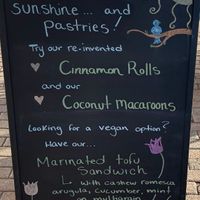 sunshine... and
pastries!
Try our re-invented
Cinnamon Rolls
and our
Coconut Macaroons
Looking for a vegan option?
Have our...
Marinated tofu
Sandwich
↳ with cashew romesca
arugula, cucumber, mint
on multigrain